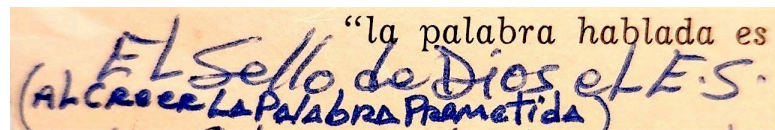 “la palabra hablada es
EL Sello de Dios eL E.S.
(AL CREER LA PALABRA PROMETIDA)